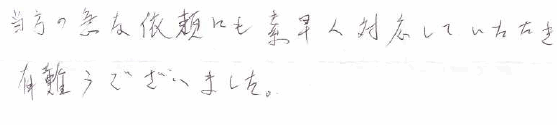 当方の急な依頼にも素早く対応していただき
有難うございました。